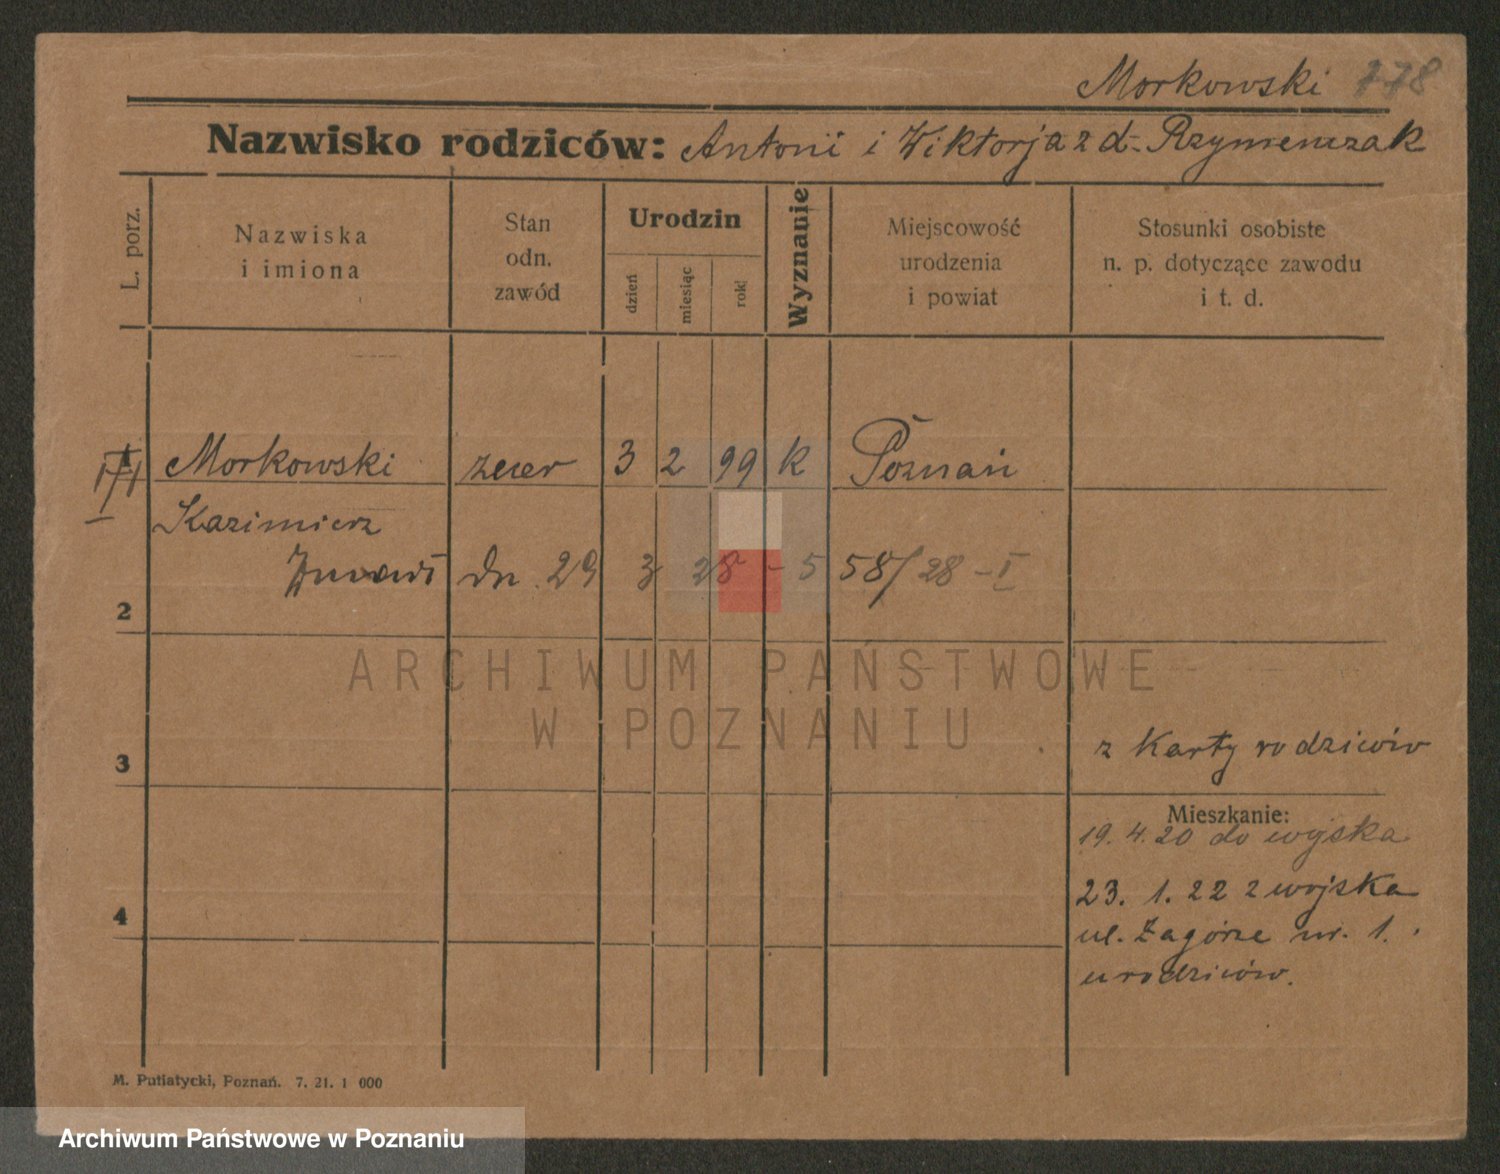 Morkowski 778
Nazwisko rodziców: Antoni i Wiktorja z d. Rzymenczak
L. porz.
Nazwiska
i imiona
Stan
odn.
zawód
Urodzin
dzień
miesiąc
rok
Wyznanie
Miejscowość
urodzenia
i powiat
Stosunki osobiste
n. p. dotyczące zawodu
i t. d.
Morkowski zecer 3 2 99 k Poznań
Kazimierz
dn. 29 3 28 - 558/28 - I
2
ARCHIWUM PAŃSTWOWE
W POZNANIU
3
z karty rodziców
Mieszkanie:
19. 4. 20 do wojska
23. 1. 22 z wojska
4
ul. Zagórze nr. 1.
u rodziców.
M. Putiatycki, Poznań. 7. 21. 1 000
Archiwum Państwowe w Poznaniu